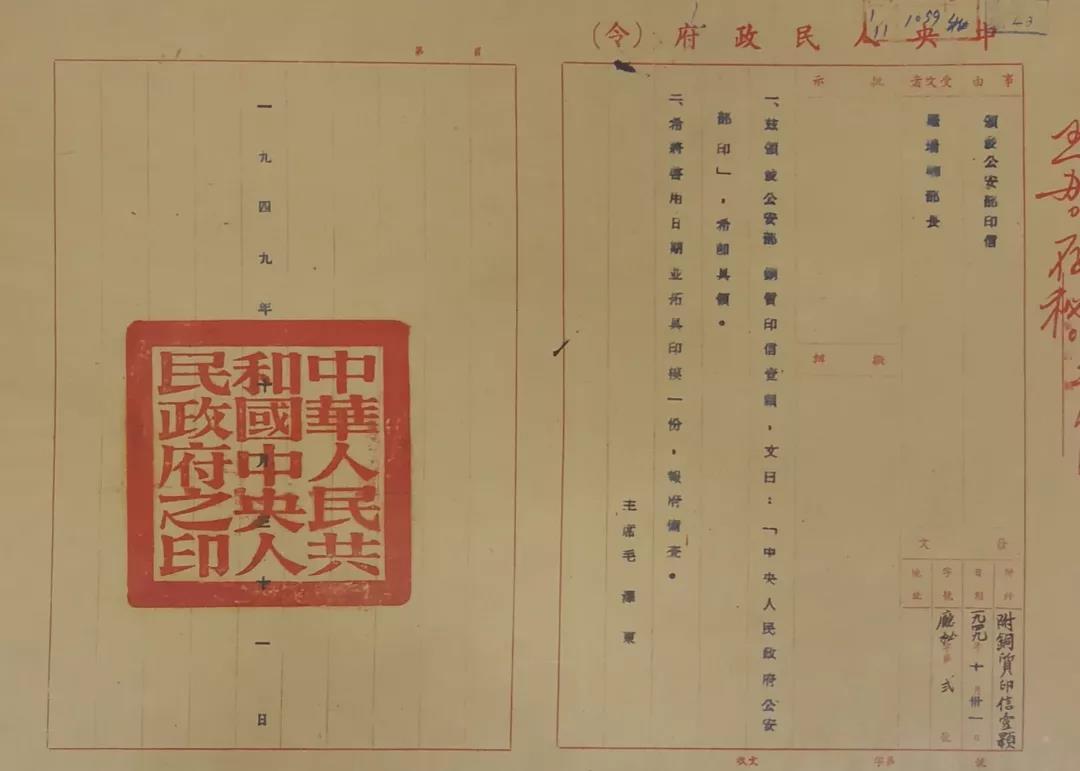 中央人民政府（令）
1059
43
事由
頒發公安部印信
受文者
羅瑞卿部長
批示
擬辦
發文
附件
附銅質印信壹顆
日期
一九四九年十月卅一日
字號
廳秘字第弍號
地址
一、茲頒發公安部銅質印信壹顆，文曰：「中央人民政府公安
部印」，希即具領。
二、希將啓用日期並拓具印模一份，報府備查。
主席毛澤東
收文 字第 號
第 頁
一九四九年十月三十一日
中華人民共
和國中央人
民政府之印